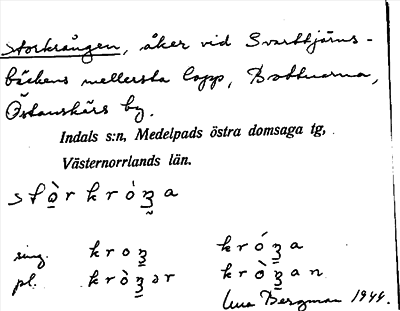 Storkrången, åker vid Svarttjärns-
bäckens mellersta lopp, Bottnarna,
Östanskärs by.
Indals s:n, Medelpads östra domsaga tg,
Västernorrlands län.
stò̱rkròʒ̱a
sing. kroʒ̱ króʒ̱a
pl. kròʒ̱ər kròʒ̱an
Bergman 1944.